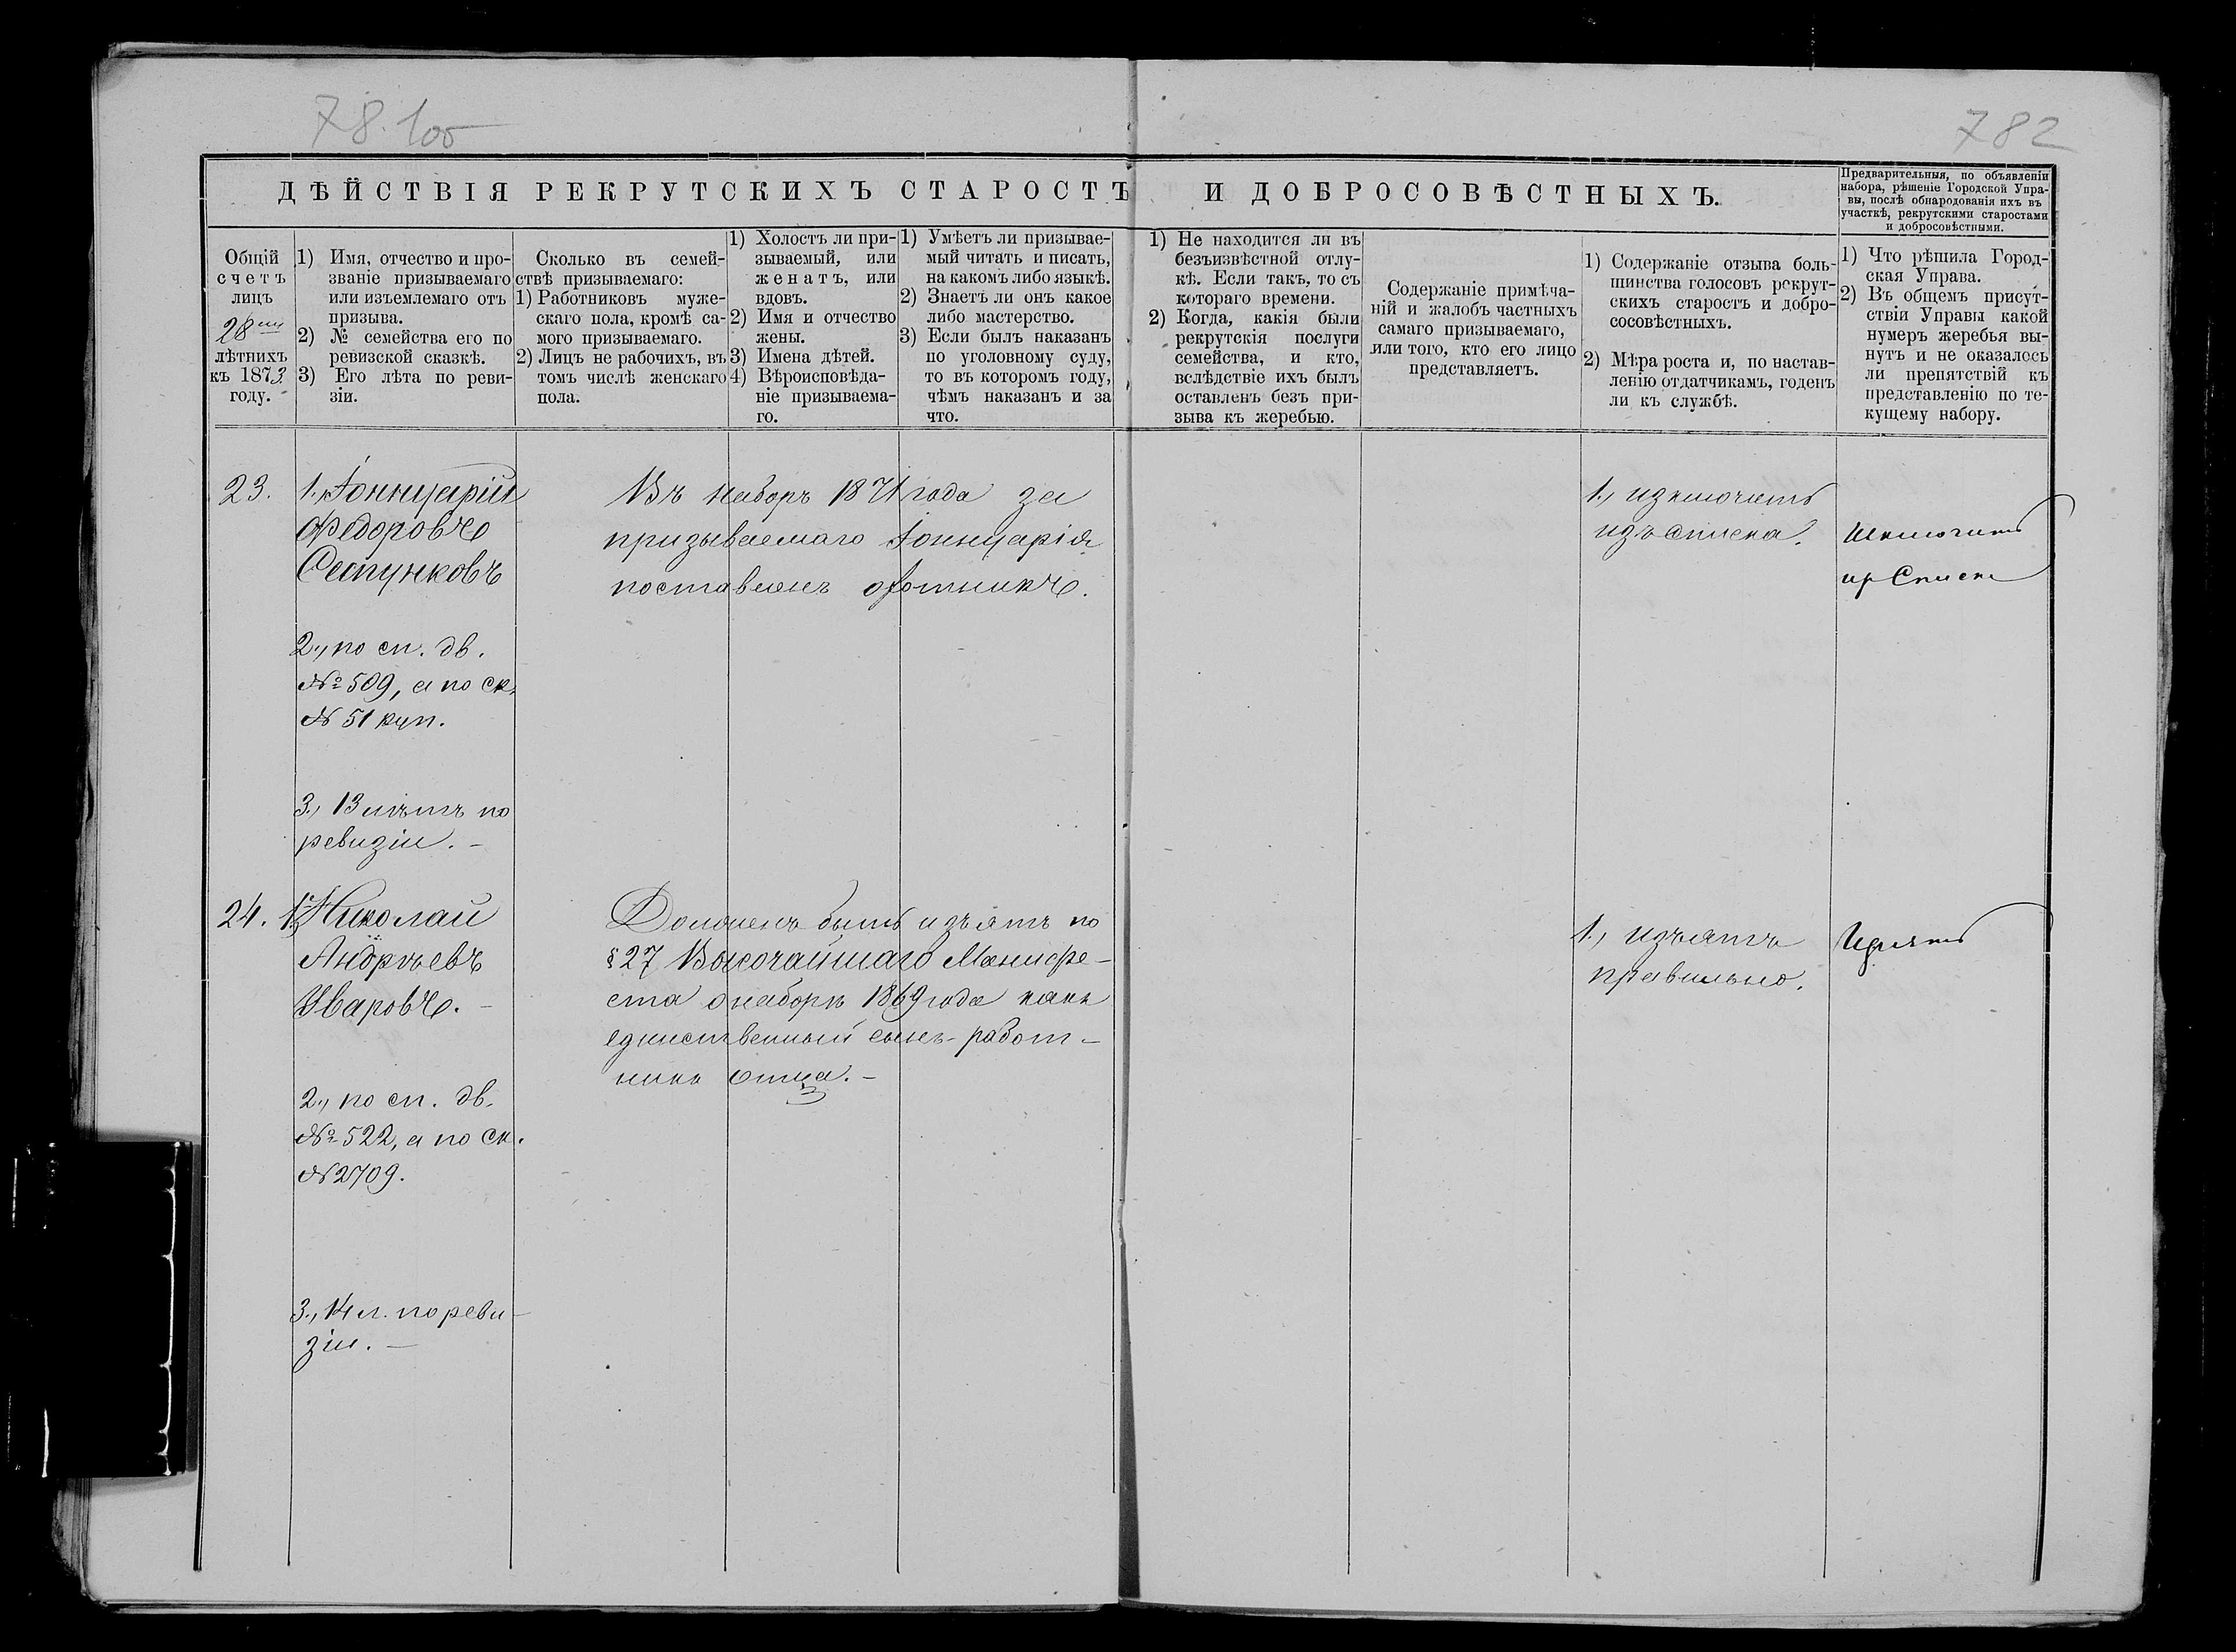 78. 100
782
ДѢЙСТВІЯ РЕКРУТСКИХЪ СТАРОСТЪ И ДОБРОСОВѢСТНЫХЪ.
Предварительныя, по объявленіи
набора, рѣшеніе Городской Упра-
вы, послѣ обнародованія ихъ въ
участкѣ, рекрутскими старостами
и добросовѣстными.
Общій
счетъ
лицъ
28ми
лѣтнихъ
къ 1873
году.
1) Имя, отчество и про-
званіе призываемаго
или изъемлемаго отъ
призыва.
2) № семейства его по
ревизской сказкѣ.
3) Его лѣта по реви-
зіи.
Сколько въ семей-
ствѣ призываемаго:
1) Работниковъ муже-
скаго пола, кромѣ са-
мого призываемаго.
2) Лицъ не рабочихъ, въ
томъ числѣ женскаго
пола.
1) Холостъ ли при-
зываемый, или
женатъ, или
вдовъ.
2) Имя и отчество
жены.
3) Имена дѣтей.
4) Вѣроисповѣда-
ніе призываема-
го.
1) Умѣетъ ли призывае-
мый читать и писать,
на какомъ либо языкѣ.
2) Знаетъ ли онъ какое
либо мастерство.
3) Если былъ наказанъ
по уголовному суду,
то въ которомъ году,
чѣмъ наказанъ и за
что.
1) Не находится ли въ
безъизвѣстной отлу-
кѣ. Если такъ, то съ
котораго времени.
2) Когда, какія были
рекрутскія послуги
семейства, и кто,
вслѣдствіе ихъ былъ
оставленъ безъ при-
зыва къ жеребью.
Содержаніе примѣча-
ній и жалобъ частныхъ
самаго призываемаго,
или того, кто его лицо
представляетъ.
1) Содержаніе отзыва боль-
шинства голосовъ рекрут-
скихъ старостъ и добро-
сосовѣстныхъ.
2) Мѣра роста и, по настав-
ленію отдатчикамъ, годенъ
ли къ службѣ.
1) Что рѣшила Город-
ская Управа.
2) Въ общемъ присут-
ствіи Управы какой
нумеръ жеребья вы-
нутъ и не оказалось
ли препятствій къ
представленію по те-
кущему набору.
23.
1., Іоннуарій
Федоровъ
Сапунковъ
2., по сп. дв.
№ 509, а по ск.
№ 51 куп.
3., 13 лѣтъ по
ревизіи. –
Въ наборъ 1871 года за
призываемаго Іоннуарія
поставленъ охотникъ.
1., изключить
изъ списка.
Исключить
изъ Списка
24.
1., Николай
Андреевъ
Уваровъ. –
2., по сп. дв.
№ 522, а по ск.
№ 2709.
3., 14 л. по реви-
зіи. –
Долженъ быть изъятъ по
§ 27 Высочайшаго Манифе-
ста о наборѣ 1869 года какъ
единственный сынъ-работ-
никъ отца. –
1., изъятъ
правильно.
Изъять